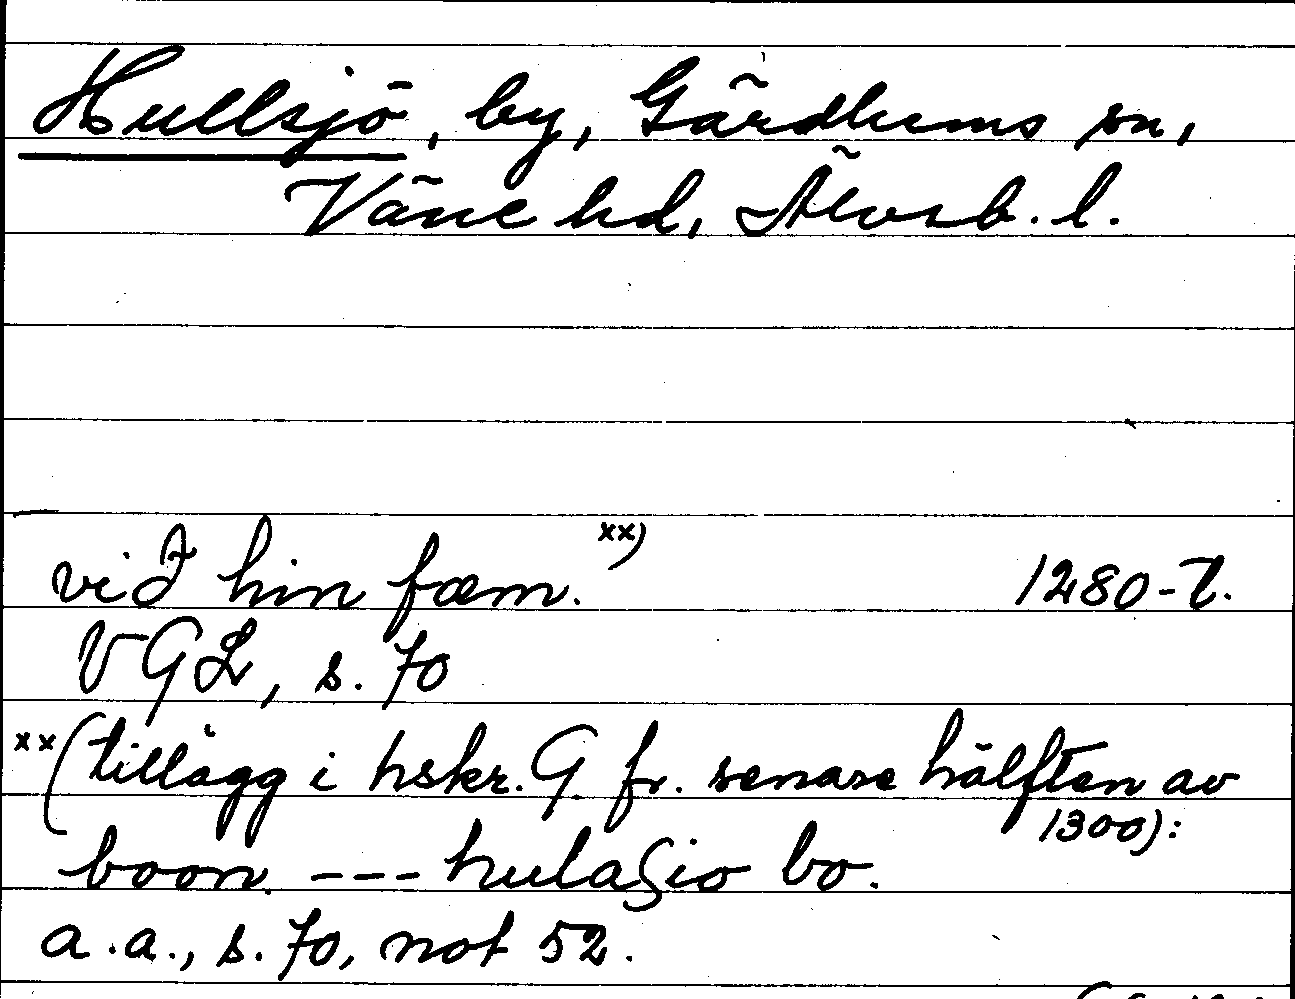 Hullsjö, by, Gärdhems sn,
Väne hd, Älvsb. l.
við hin fæm. xx) 1280-t.
VGL, s. 70
xx (tillägg i hskr. G fr. senare hälften av
1300):
boon --- hulaſio bo.
a.a., s. 70, not 52.